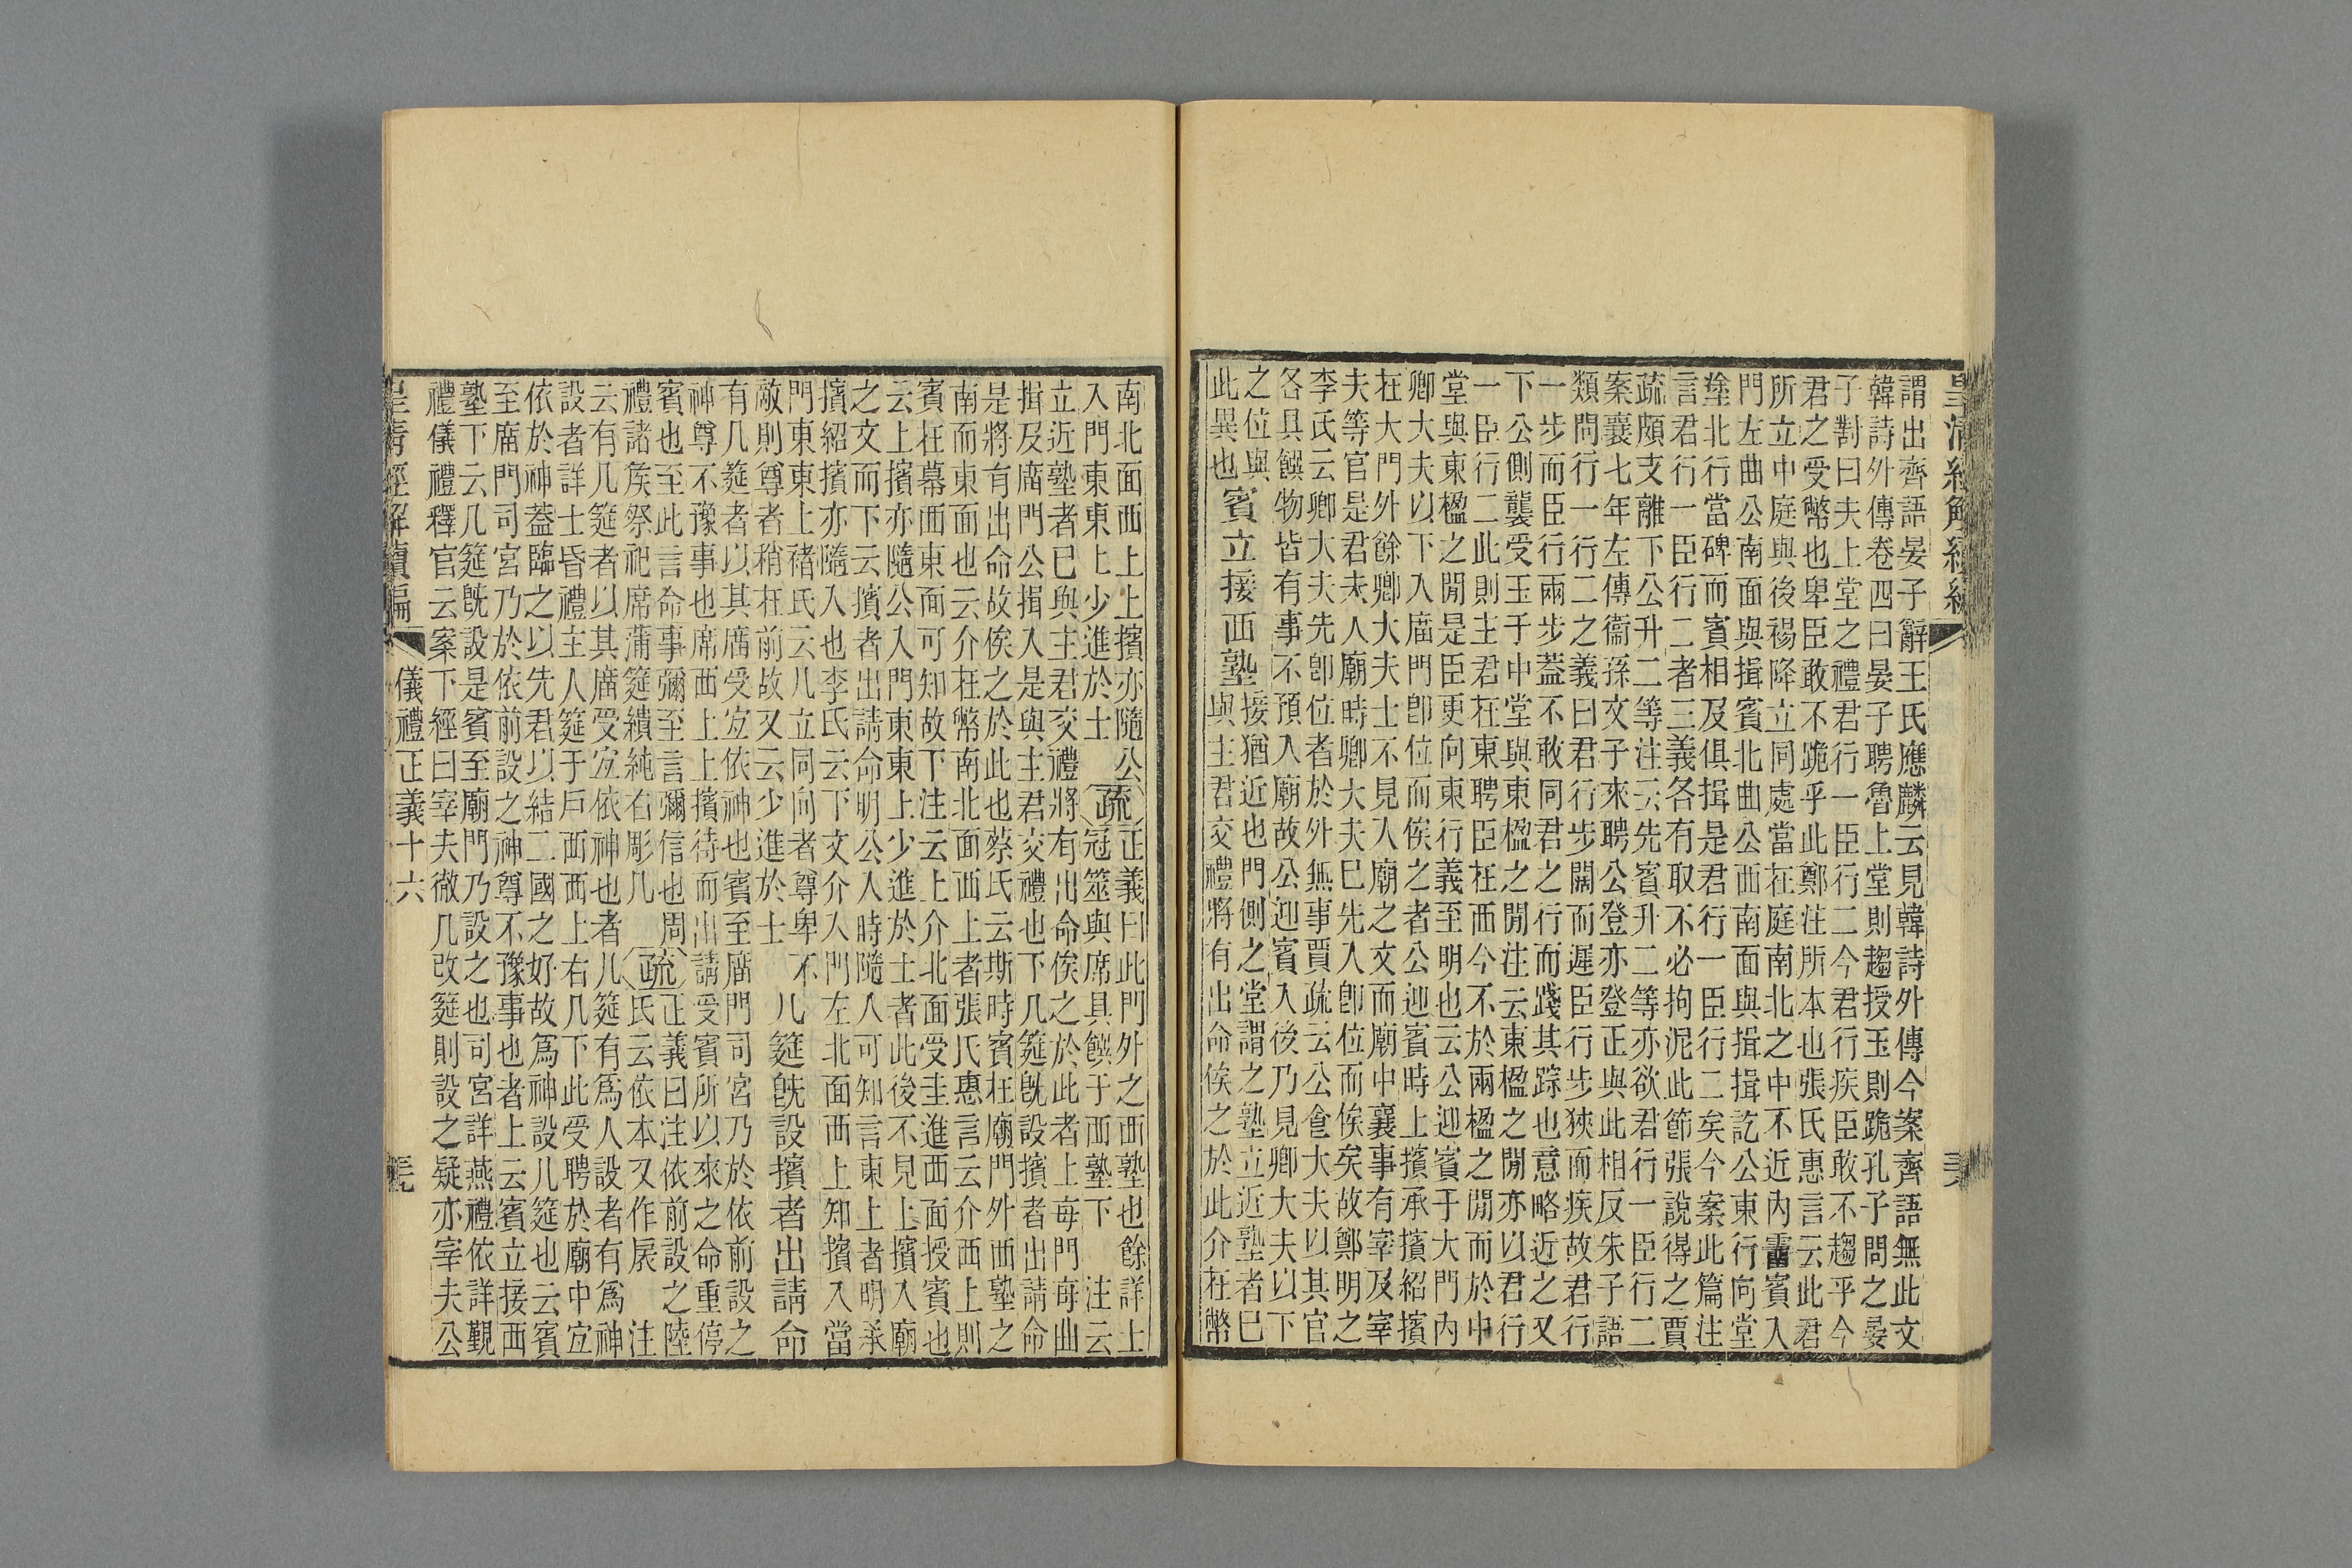 皇清經解續編
謂出齊語晏子辭王氏應麟云見韓詩外傳今案齊語無此文
韓詩外傳卷四曰晏子聘魯上堂則趨授玉則跪孔子問之晏
子對曰夫上堂之禮君行一臣行二今君行疾臣敢不趨乎今
君之受幣也卑臣敢不跪乎此鄭注所本也張氏惠言云此君
所立中庭與後裼降立同處當在庭南北之中不近內霤賓入
門左曲公南面與揖賓北曲公西南面與揖揖訖公東行向堂
塗北行當碑而賓相及俱揖是君行一臣行二矣今案此篇注
言君行一臣行二者三義各有取不必拘泥此節張說得之賈
疏頗支離下公升二等注云先賓升二等亦欲君行一臣行二
案襄七年左傳衞孫文子來聘公登亦登正與此相反朱子語
類問行一行二之義曰君行步闊而遲臣行步狹而疾故君行
一步而臣行兩步葢不敢同君之行而踐其踪也意略近之又
下公側襲受玉于中堂與東楹之閒注云東楹之閒亦以君行
一臣行二此則主君在東聘臣在西今不於兩楹之閒而於中
堂與東楹之閒是臣更向東行義至明也云公迎賓于大門內
卿大夫以下入廟門卽位而俟之者公迎賓時上擯承擯紹擯
在大門外餘卿大夫士不見入廟之文而廟中襄事有宰及宰
夫等官是君未入廟時卿大夫已先入卽位而俟矣故鄭明之
李氏云卿大夫先卽位者於外無事賈疏云公食大夫以其官
各具饌物皆有事不預入廟故公迎賓入後乃見卿大夫以下
之位與
此異也賓立接西塾接猶近也門側之堂謂之塾立近塾者已
與主君交禮將有出命俟之於此介在幣
南北面西上上擯亦隨公
入門東東上少進於士疏正義曰此門外之西塾也餘詳士
冠筮與席具饌于西塾下注云
立近塾者已與主君交禮將有出命俟之於此者上每門每曲
揖及廟門公揖入是與主君交禮也下几筵旣設擯者出請命
是將有出命故俟之於此也蔡氏云斯時賓在廟門外西塾之
南而東面也云介在幣南北面西上者張氏惠言云介西上則
賓在幕西東面可知故下注云上介北面受圭進西面授賓也
云上擯亦隨公入門東東上少進於士者此後不見上擯入廟
之文而下云擯者出請命明公入時隨入可知言東上者明承
擯紹擯亦隨入也李氏云下文介入門左北面西上知擯入當
門東東上禇氏云几立同向者尊卑不
敵則尊者稍在前故又云少進於士几筵旣設擯者出請命
有几筵者以其廟受宜依神也賓至廟門司宮乃於依前設之
神尊不豫事也席西上上擯待而出請受賓所以來之命重停
賓也至此言命事彌至言彌信也周
禮諸矦祭祀席蒲筵繢純右彫几疏正義曰注依前設之陸
氏云依本又作扆注
云有几筵者以其廟受宜依神也者几筵有爲人設者有爲神
設者詳士昏禮主人筵于戶西西上右几下此受聘於廟中宜
依於神葢臨之以先君以結二國之好故爲神設几筵也云賓
至廟門司宮乃於依前設之神尊不豫事也者上云賓立接西
塾下云几筵旣設是賓至廟門乃設之也司宮詳燕禮依詳覲
禮儀禮釋官云案下經曰宰夫徹几改筵則設之疑亦宰夫公
皇清經解續編
儀禮正義十六